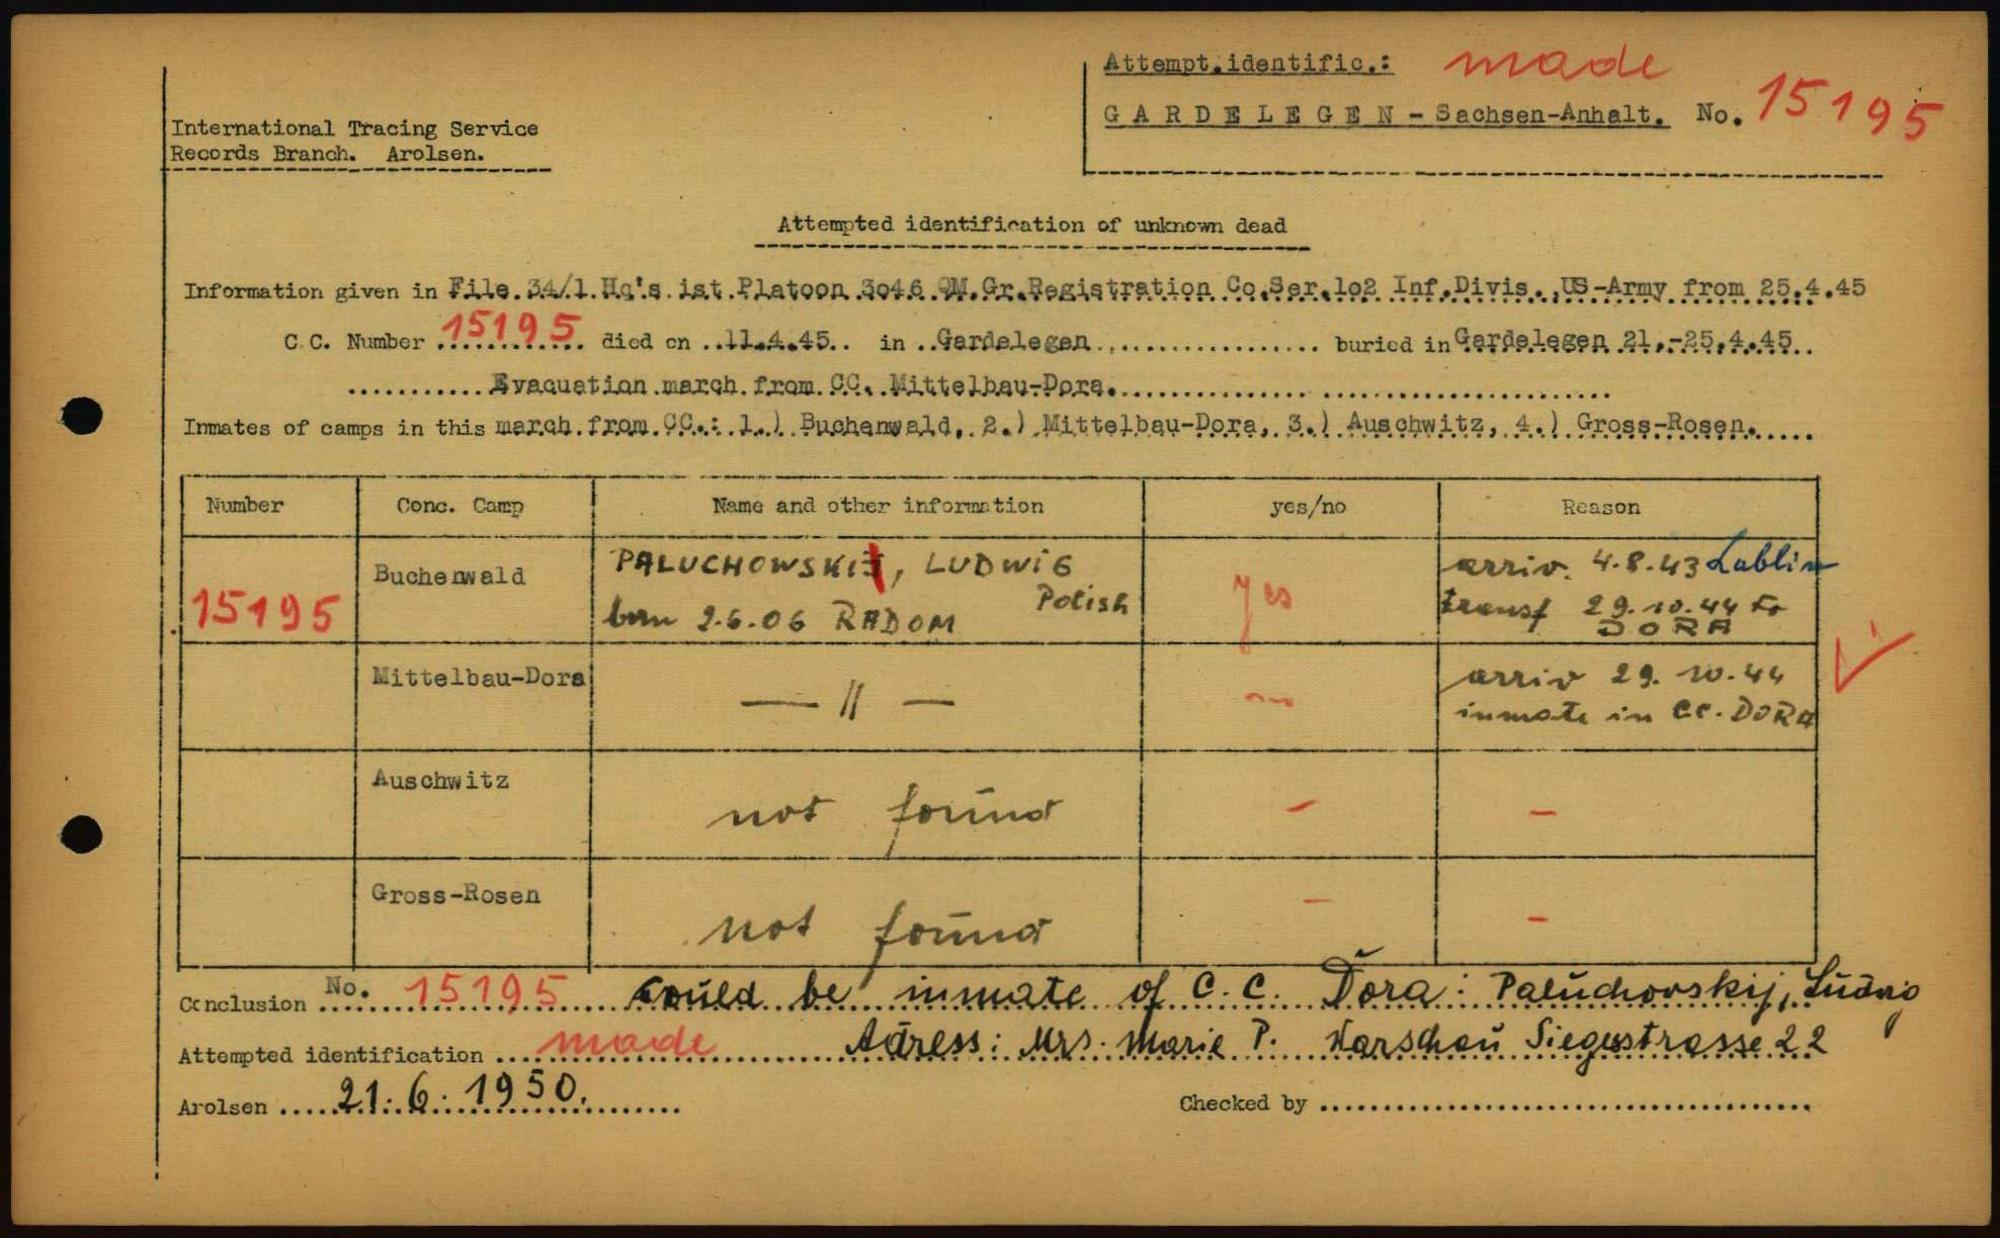 Attempt.identific.: made
GARDELEGEN - Sachsen-Anhalt. No. 15195
International Tracing Service
Records Branch. Arolsen.
Attempted identification of unknown dead
Information given in File 34/1 Hq's ist Platoon 3o46 QM.Gr.Registration Co.Ser.1o2 Inf.Divis., US-Army from 25.4.45
C.C. Number 15195 died on 11.4.45 in Gardelegen buried in Gardelegen 21.-25.4.45
Evacuation march from CC. Mittelbau-Dora.
Inmates of camps in this march from CC.: 1.) Buchenwald, 2.) Mittelbau-Dora, 3.) Auschwitz, 4.) Gross-Rosen.
Number Conc. Camp Name and other information yes/no Reason
15195 Buchenwald PALUCHOWSKI, LUDWIG Polish born 2.6.06 RADOM yes arriv. 4.8.43 Lublin transf 29.10.44 to DORA
Mittelbau-Dora — // — arriv 29.10.44 inmate in CC. DORA
Auschwitz not found - -
Gross-Rosen not found - -
Conclusion No. 15195 could be inmate of C.C. Dora: Paluchovskij, Ludwig
Attempted identification made Adress: Mrs. Marie P. Warschau Siegesstrasse 22
Arolsen 21.6.1950. Checked by